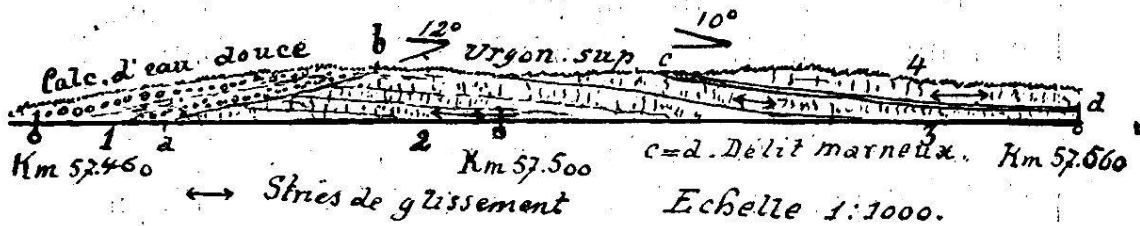 12° 10°
Calc. d'eau douce b Urgon. sup c 4
d
1 a 2 3
Km 57.460 Km 57.500 c=d. Délit marneux. Km 57.560
↔ Stries de glissement Echelle 1:1000.